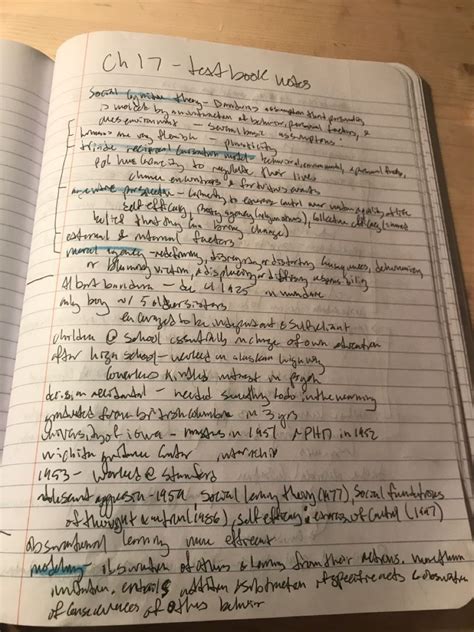 Ch 17 - textbook notes
Social Cognitive theory - Bandura's assumption that personality
is molded by an interaction of behavior, personal factors, &
environment - several basic assumptions:
humans are very flexible - plasticity
triadic reciprocal causation model - behavioral, environmental, & personal factors,
ppl have capacity to regulate their lives
chance encounters & fortuitous events
agentic perspective - capacity to exercise control over nature & quality of life
self efficacy, proxy agency, collective efficacy (shared
belief that they can bring change)
external & internal factors
moral agency - redefining, disregarding or distorting consequences, dehumanizing
or blaming victim, & displacing or diffusing responsibility
Albert bandura - dec 4 1925 in mundare
only boy w/ 5 older sisters
encouraged to be independent & self reliant
children @ school essentially in charge of own education
after high school - worked on alaskan highway
coworkers kindled interest in psych
decision accidental - needed something to do in the morning
graduated from british columbia in 3 yrs
university of iowa - masters in 1951 & PHD in 1952
wichita guidance center, internship
1953 - worked @ stanford
adolescent aggression - 1959 Social learning theory (1977), Social foundations
of thought & action (1986), self efficacy: exercise of control (1997)
observational learning more efficient
modeling observation of others & learning from their actions. more than
imitation, entails addition & subtraction of specific acts & observation
of consequences of others behavior